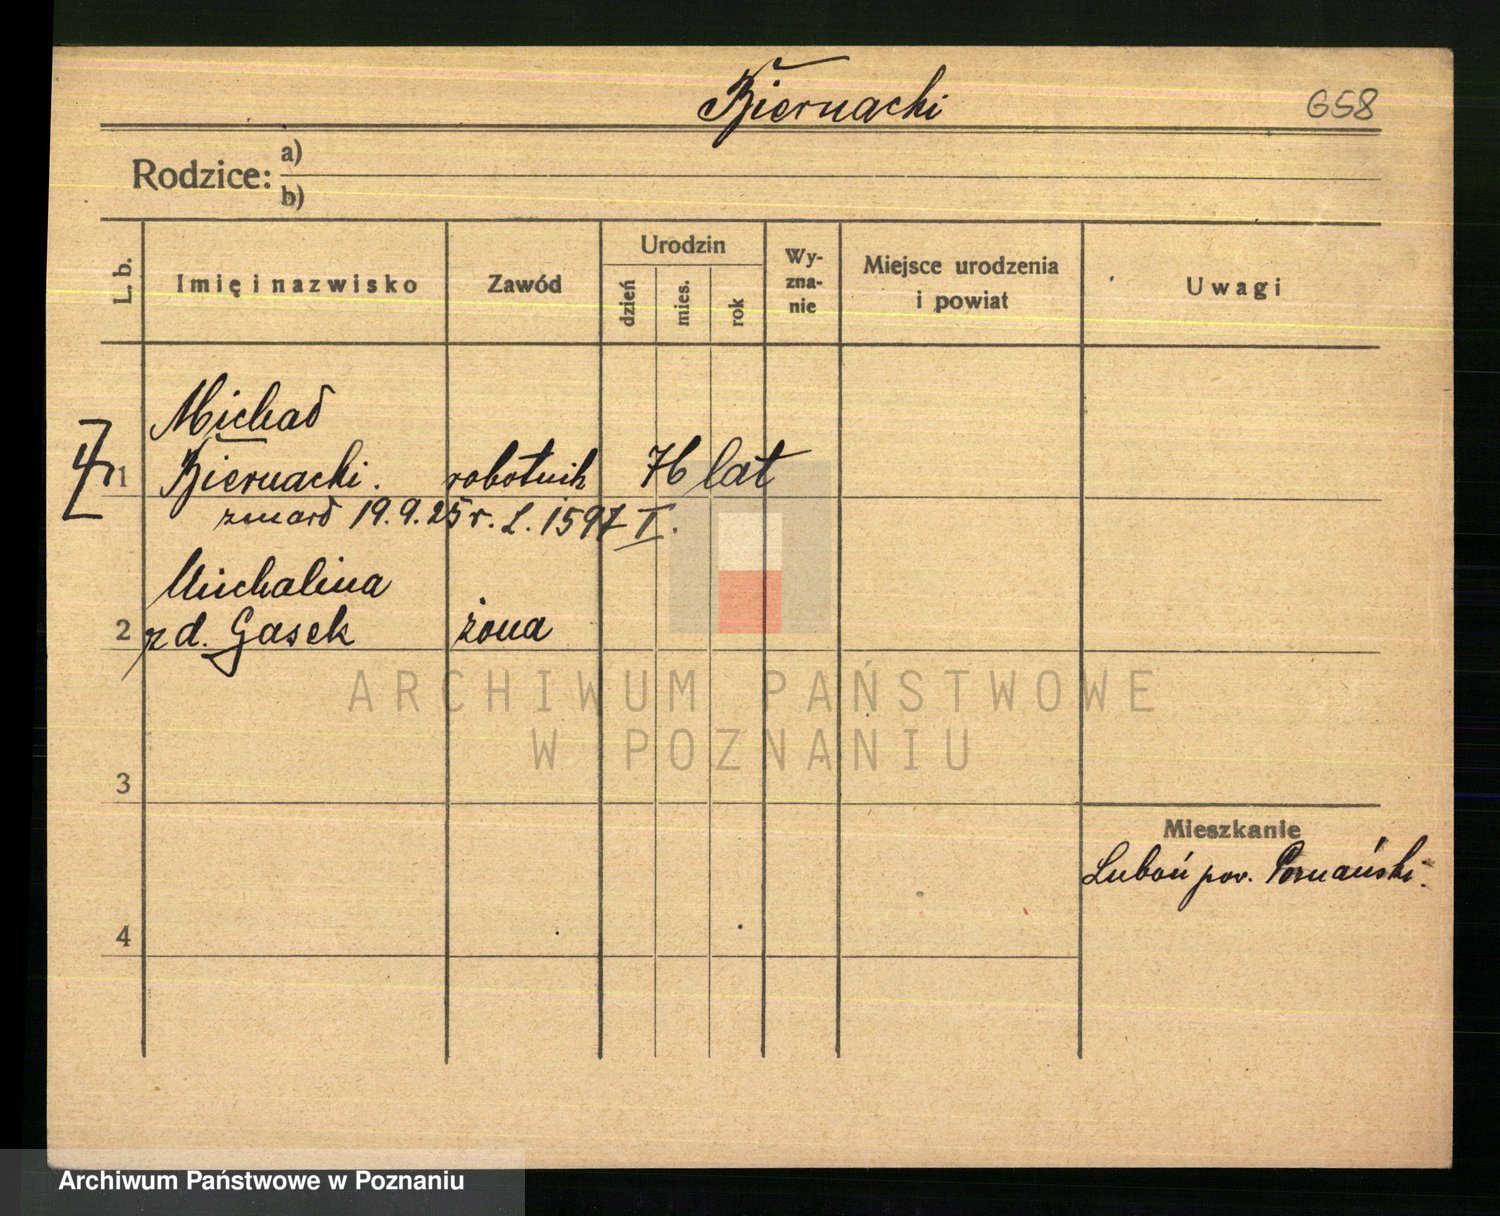 Biernacki
658
Rodzice: a)
b)
L. b.
Imię i nazwisko
Zawód
Urodzin
dzień
mies.
rok
Wy-
zna-
nie
Miejsce urodzenia
i powiat
Uwagi
Michał
1 Biernacki. robotnik 76 lat
zmarł 19.9.25 r. L. 1597 I.
Michalina
2 z d. Gasek żona
ARCHIWUM PAŃSTWOWE
W POZNANIU
3
Mieszkanie
Luboń pow. Poznański.
4
Archiwum Państwowe w Poznaniu